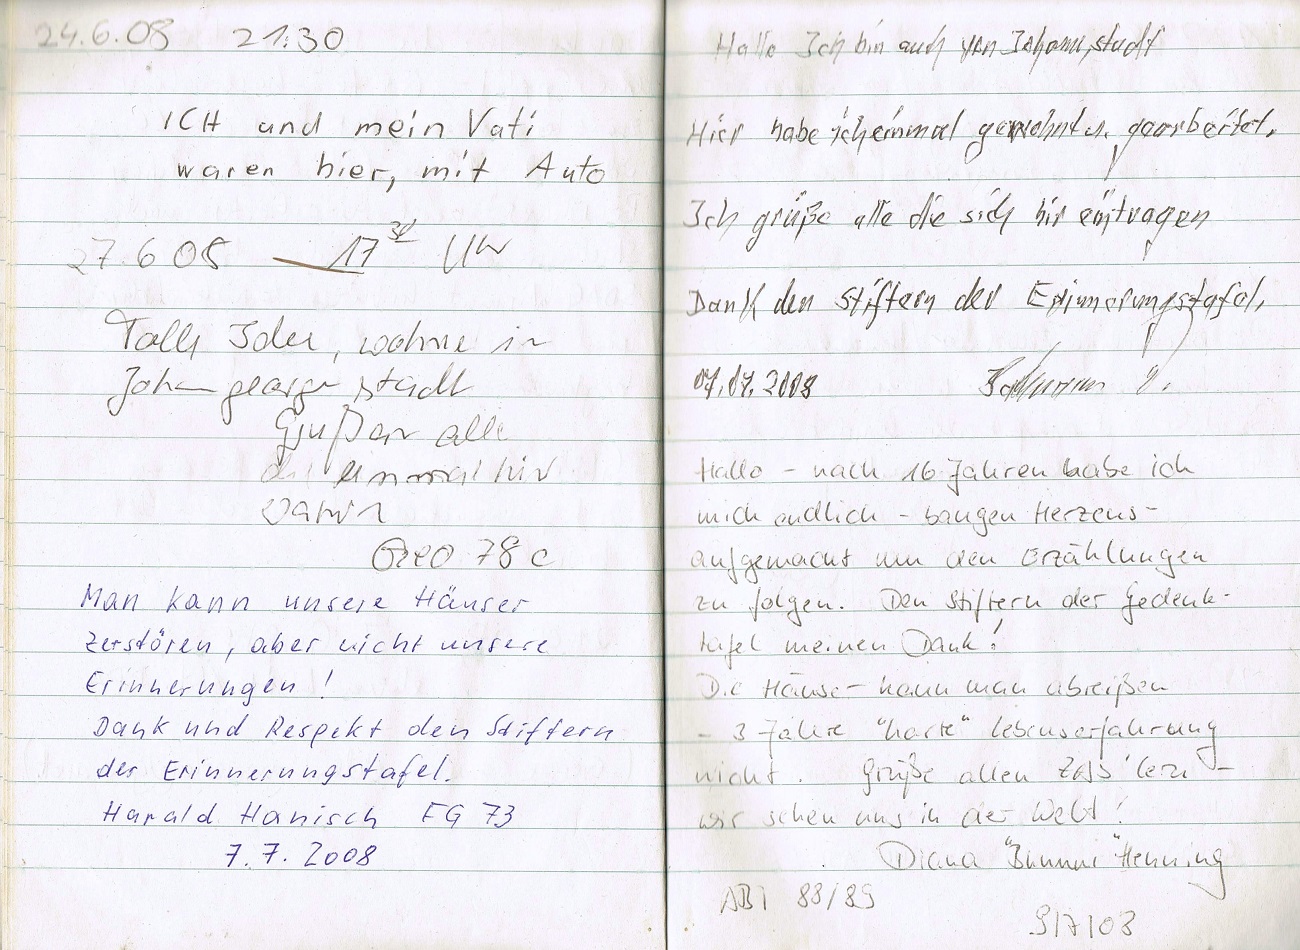 24.6.08 21:30
ICH und mein Vati
waren hier, mit Auto
27.6 08 17 30 Uhr
wohne in
Johanngeorgenstadt
Grüßen alle
die einmal hir
waren
Geo 78 c
Man kann unsere Häuser
zerstören, aber nicht unsere
Erinnerungen!
Dank und Respekt den Stiftern
der Erinnerungstafel.
Harald Hanisch FG 73
7.7.2008
Hallo Ich bin auch von Johannstadt
Hier habe ich einmal gewohnt u. gearbeitet.
Ich grüße alle die sich hir eintragen
Dank den Stiftern der Erinnerungstafel.
07.07.2008
Hallo - nach 16 Jahren habe ich
mich endlich - bangen Herzens -
aufgemacht um den Erzählungen
zu folgen. Den Stiftern der Gedenk-
tafel meinen Dank!
Die Häuser kann man abreißen
- 3 Jahre "harte" Lebenserfahrung
nicht. Grüße allen -
wir sehen uns in der Welt!
Diana Henning
ABI 88/89
9/7/08